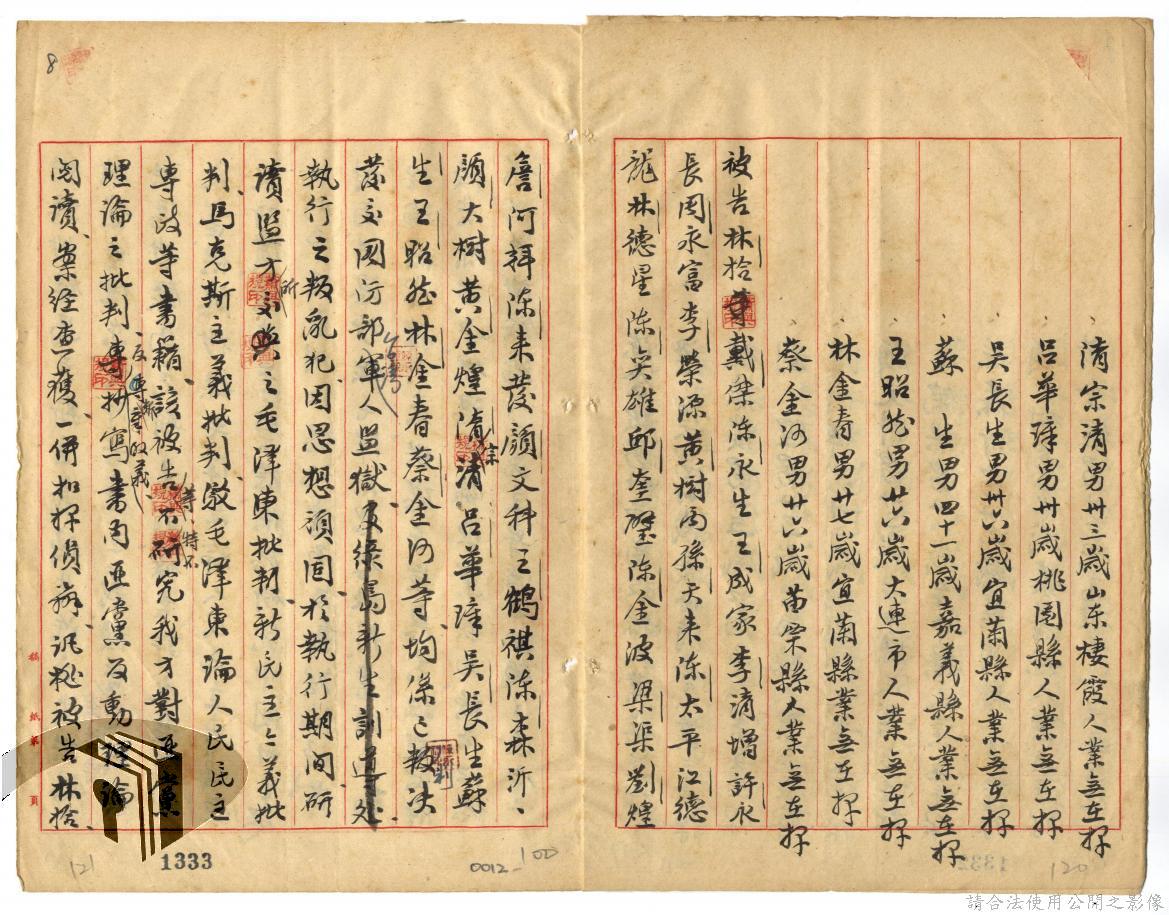 清宗清男卅三歲山东棲霞人業無在押
呂華璋男卅歲桃園縣人業無在押
吳長生男卅六歲宜蘭縣人業無在押
蘇　生男四十一歲嘉義縣人業無在押
王昭然男廿六歲大連市人業無在押
林金春男廿七歲宜蘭縣業無在押
蔡金河男廿六歲苗栗縣人業無在押
被告林拾戴傑涂永生王成家李滴增許永
長周永富李榮源黃樹孫天来涂太平江德
龍林德星陈英雄邱奎璧陈金波梁渠劉煌
詹河拜涂来發顏文科王鶴祺涂森沂
顏大树黄金煌清宗清呂華璋吳長生蘇
生王昭然林金春蔡金河等均係已叛决判
發交國防部軍人監獄及綠島新生訓導处
執行之叛乱犯因思想頑固於執行期间研
讀监方所交与之毛澤東批判、新民主主義批
判、馬克斯主義批判、駁毛澤東論人民民主
專政等書籍該被告等不特不研究我方對匪黨
理論之批判、反專抄寫書內匪黨反動理論
阅讀、案經查獲、一併扣押偵辦、訊據被告林拾、
8
121
1333
0012
100
120
稿紙
頁
請合法使用公開之影像